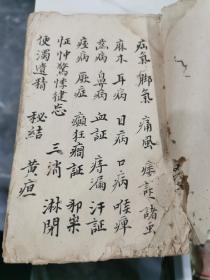 疝氣 脚氣 痛風 痿証 諸蟲
麻木 耳病 目病 口病 喉痺
齒病 鼻病 血証 痔漏 汗証
痓病 厥症 癲狂癇証 邪祟
怔忡驚悸健忘 三消 淋閉
便濁遺精 秘結 黃疸